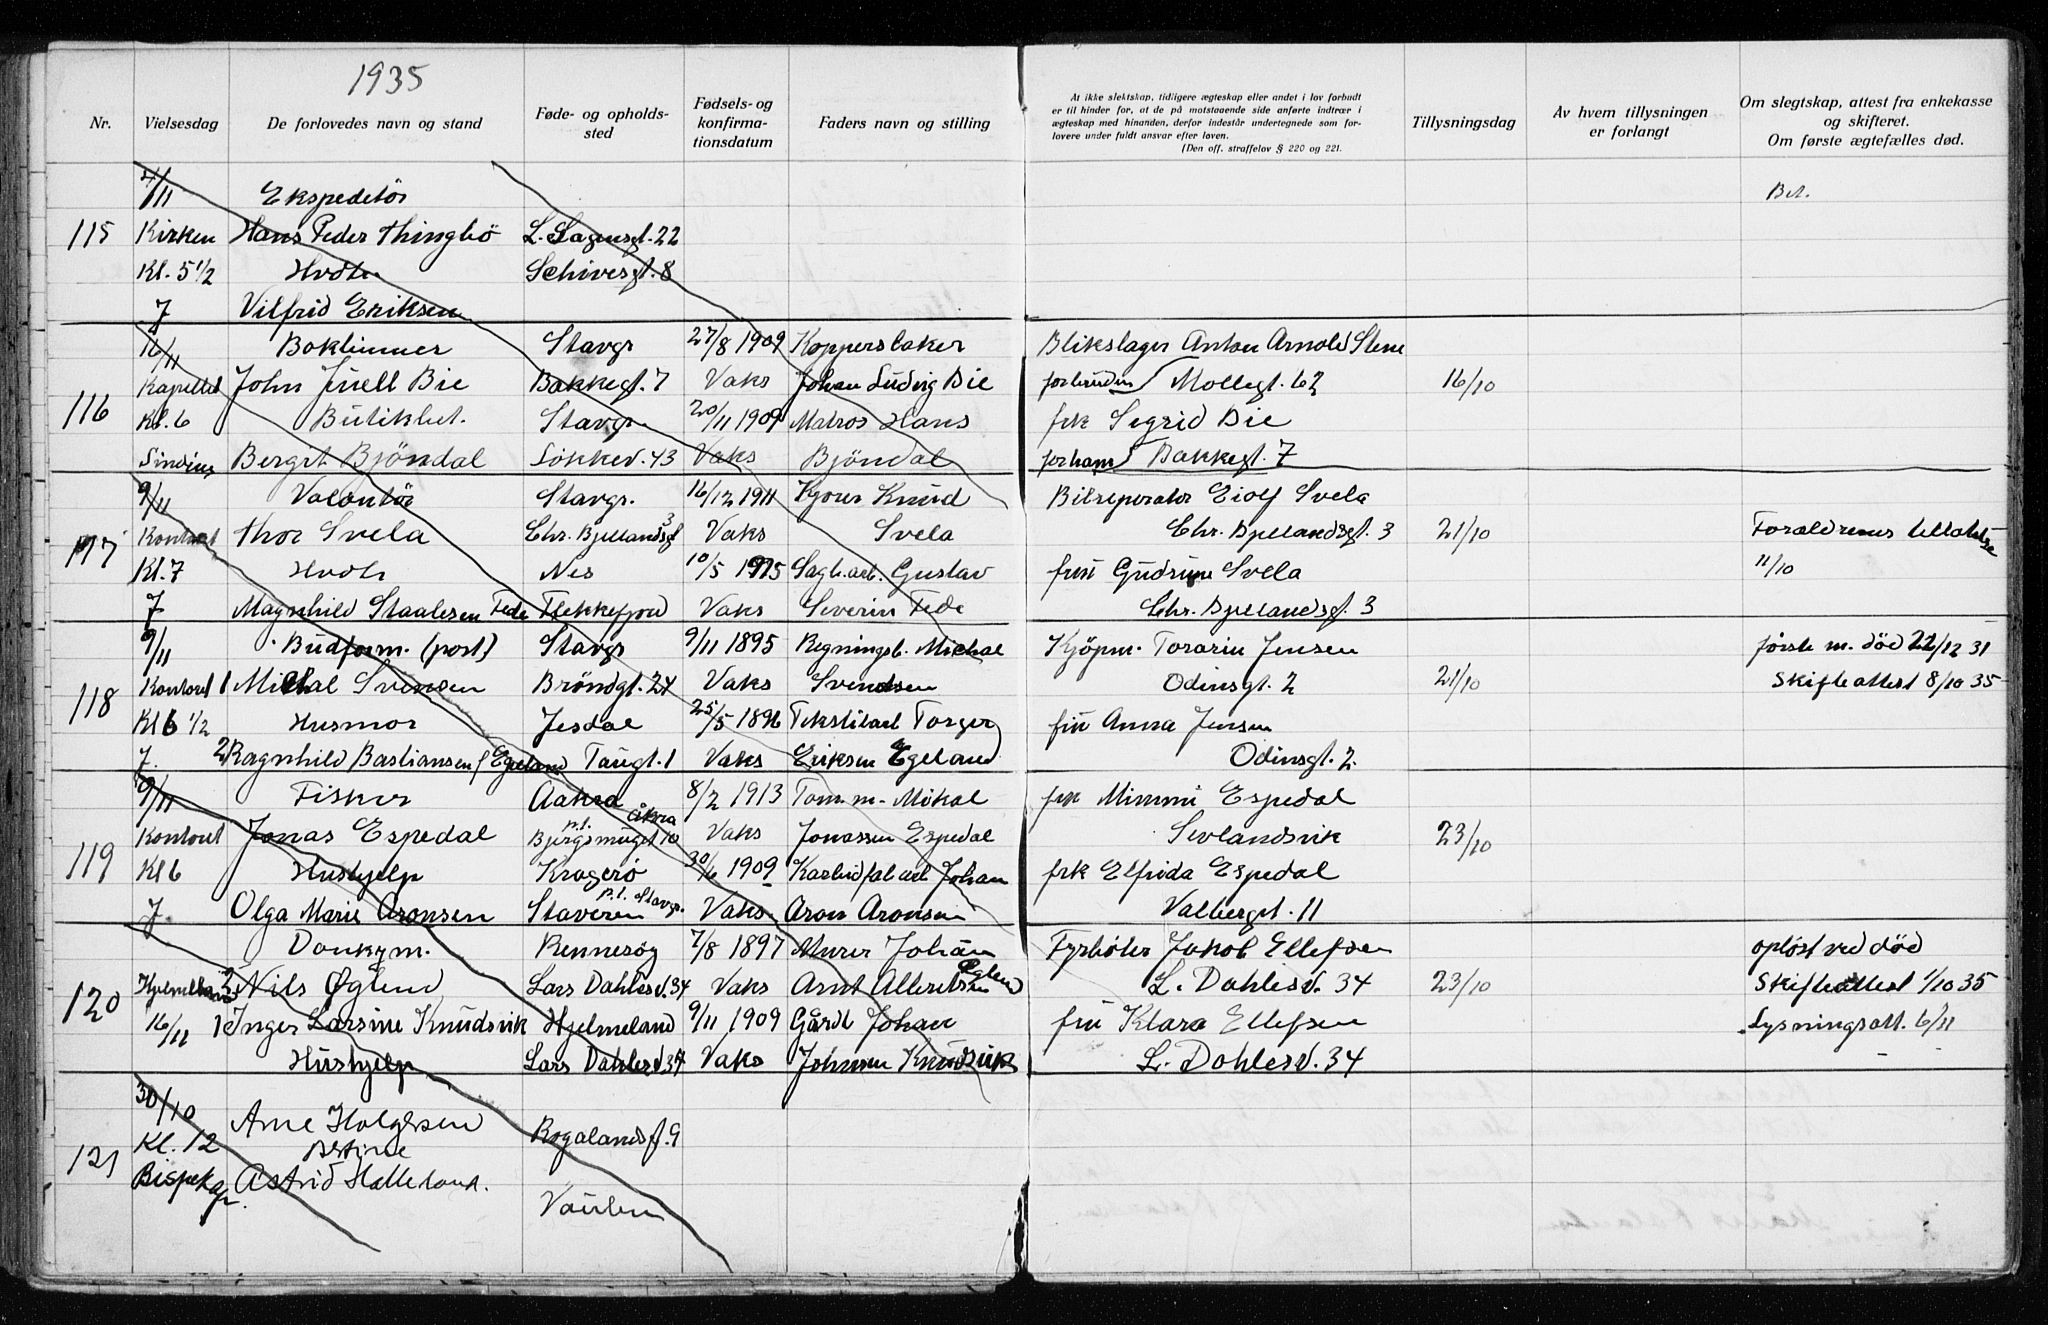 1935
Nr. Vielsesdag De forlovedes navn og stand Føde- og opholds-sted Fødsels- og konfirma-tionsdatum Faders navn og stilling
At ikke slektskap, tidligere ægteskap eller andet i lov forbudt
er til hinder for, at de på motstaaende side anførte indtrær i
ægteskap med hinanden, derfor indestår undertegnede som for-
lovere under fuldt ansvar efter loven.
(Den off. straffelov § 220 og 221.
Tillysningsdag
Av hvem tillysningen
er forlangt
Om slegtskap, attest fra enkekasse
og skifteret.
Om første ægtefælles død.
4/11 Ekspeditör Bet.
115 Kirken Hans Peder Thingbö L. Sagensgt. 22
Kl. 5 1/2 Hvdtr Schivesgt. 8
J Vilfrid Eriksen
16/11 Boktinner Stavgr 27/8 1909 Kopperslaker Blikslager Anton Arnold Stene
116 Kapellet John Juell Bie Bakkegt. 7 Vaks Johan Ludvig Bie for bruden Mollegt. 62 16/10
Kl. 6 Butikbet. Stavgr 20/11 1909 Matros Hans frk Sigrid Bie
Sindius Bergit Bjöndal Lökkev. 43 Vaks Bjöndal for ham Bakkegt. 7
9/11 Valentör Stavgr. 16/12 1911 Kjörer Knud Bilreperatör Eiolf Svela
117 Kontoret Thor Svela Chr. Bjellandsgt 3 Vaks Svela Chr. Bjellandsgt. 3 21/10 Foraldrenes tillatelse
Kl. 7 Hvdtr Nes 10/5 1915 Sagb.arb. Gustav fru Gudrune Svela 11/10
J Magnhild Staalesen Fede Flekkefjord Vaks Severin Fede Chr. Bjellandsgt. 3
9/11 Budform. (post) Stavgr 9/11 1895 Regningsb. Michal Kjöpm. Torarin Jensen förste m. död 22/12 31
118 Kontoret 1 Michal Svendsen Bröndgt. 24 Vaks Svendsen Odinsgt. 2 21/10 Skifteattest 8/10 35
Kl 6 1/2 Husmor Jesdal 25/5 1896 Tekstilarb Torger fru Anna Jensen
J. 2 Ragnhild Bastiansen f. Egeland Taugt. 1 Vaks Eriksen Egeland Odinsgt. 2
9/11 Fisker Aakra 8/2 1913 Tom.m. Mikal frk Mimmi Espedal
119 Kontoret Jonas Espedal p.t. Åkra Bjergsmuget 10 Vaks Jonassen Espedal Sevlandsvik 23/10
Kl 6 Hushjelp Kragerö 30/6 1909 Karbidfab arb Johan frk Elfrida Espedal
J Olga Marie Aronsen Staveren p.t. Stavgr. Vaks Aron Aronsen Valbergt. 11
Donkym. Rennesøy 7/8 1897 Murer Johan Fyrböter Jakob Ellefsen oplöst ved död
120 Hjelmeland 2 Nils Øglend Lars Dahlesv. 34 Vaks Arnt Albertsen Øglend L. Dahlesv. 34 23/10 Skifteattest 1/10 35
16/11 1 Inger Larsine Knudsvik Hjelmeland 9/11 1909 Gårdb Johan fru Klara Ellefsen Lysningsatt. 6/11
Hushjelp Lars Dahlesv 34 Vaks Johnsen Knudsvik L. Dahlesv. 34
30/10 Arne Holgersen
121 Kl. 12 Bertine Rogalandsg. 9
Bispekap. Astrid Helleland.
Vaulen